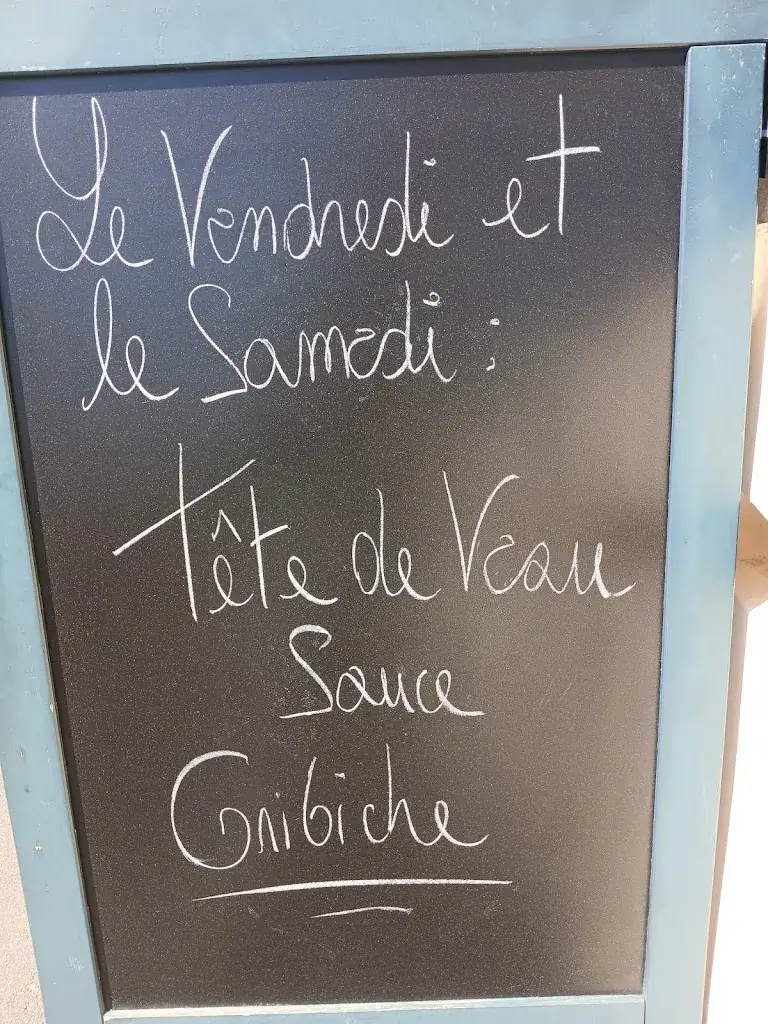 Le Vendredi et
le Samedi :
Tête de Veau
Sauce
Gribiche